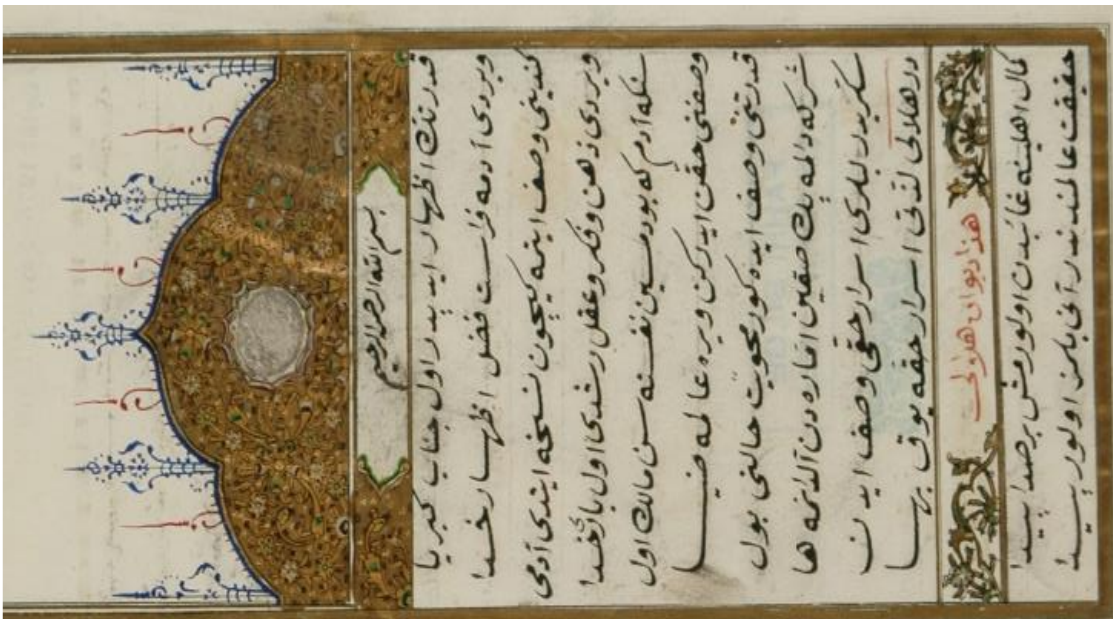 بسم الله الرحمن الرحيم
قدرتك اظهار ايديدر اول جناب كبريا
ويردى آدمه فراست فضل اظهار خدا
كندينى وصف ايتمه كيچون نسخه ايتدى آدمى
ويردى ذهن و فكر و عقل رشدى اول بار خدا
سنكه آدم كه نفسنه سن مالك اول
وصفنى حقن ايدركن ويره عالمه ضيا
قدرتنى وصف ايده كور محويت حالتى بول
شركه دالمه يك صقين اماره دن آلدانمه ها
اسرار حقى وصف ايدن
در هلالى لذتى اسرار حقه يوق بها
هذا ديوان هلالى
كمال اهلينه غائبدن اولورمش بر صدا پيدا
حقيقت عالمندندر آنى بلمز اولور پيدا